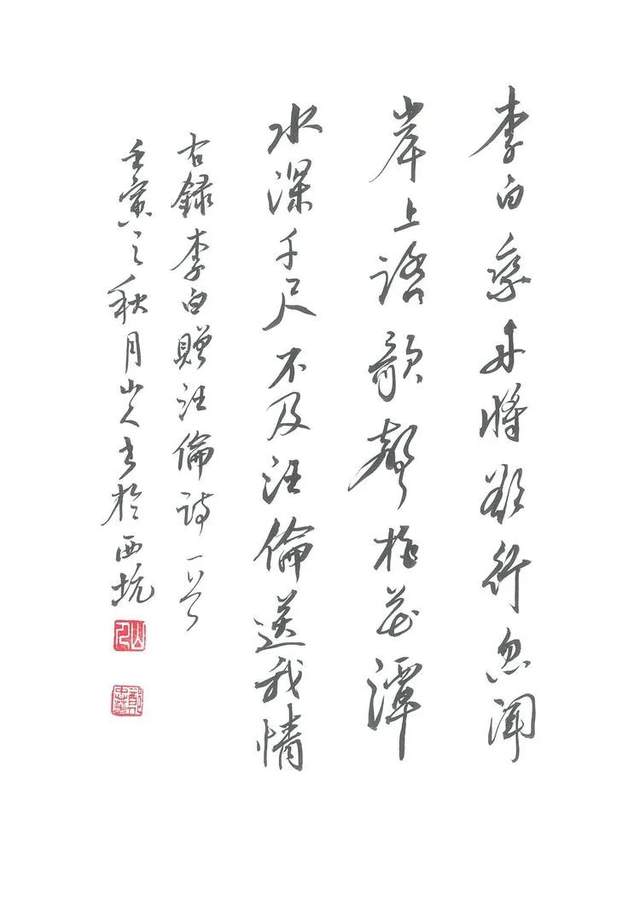 李白乘舟將欲行忽聞
岸上踏歌聲桃花潭
水深千尺不及汪倫送我情
右錄李白贈汪倫詩一首
壬寅之秋月山人書於西坑
山人